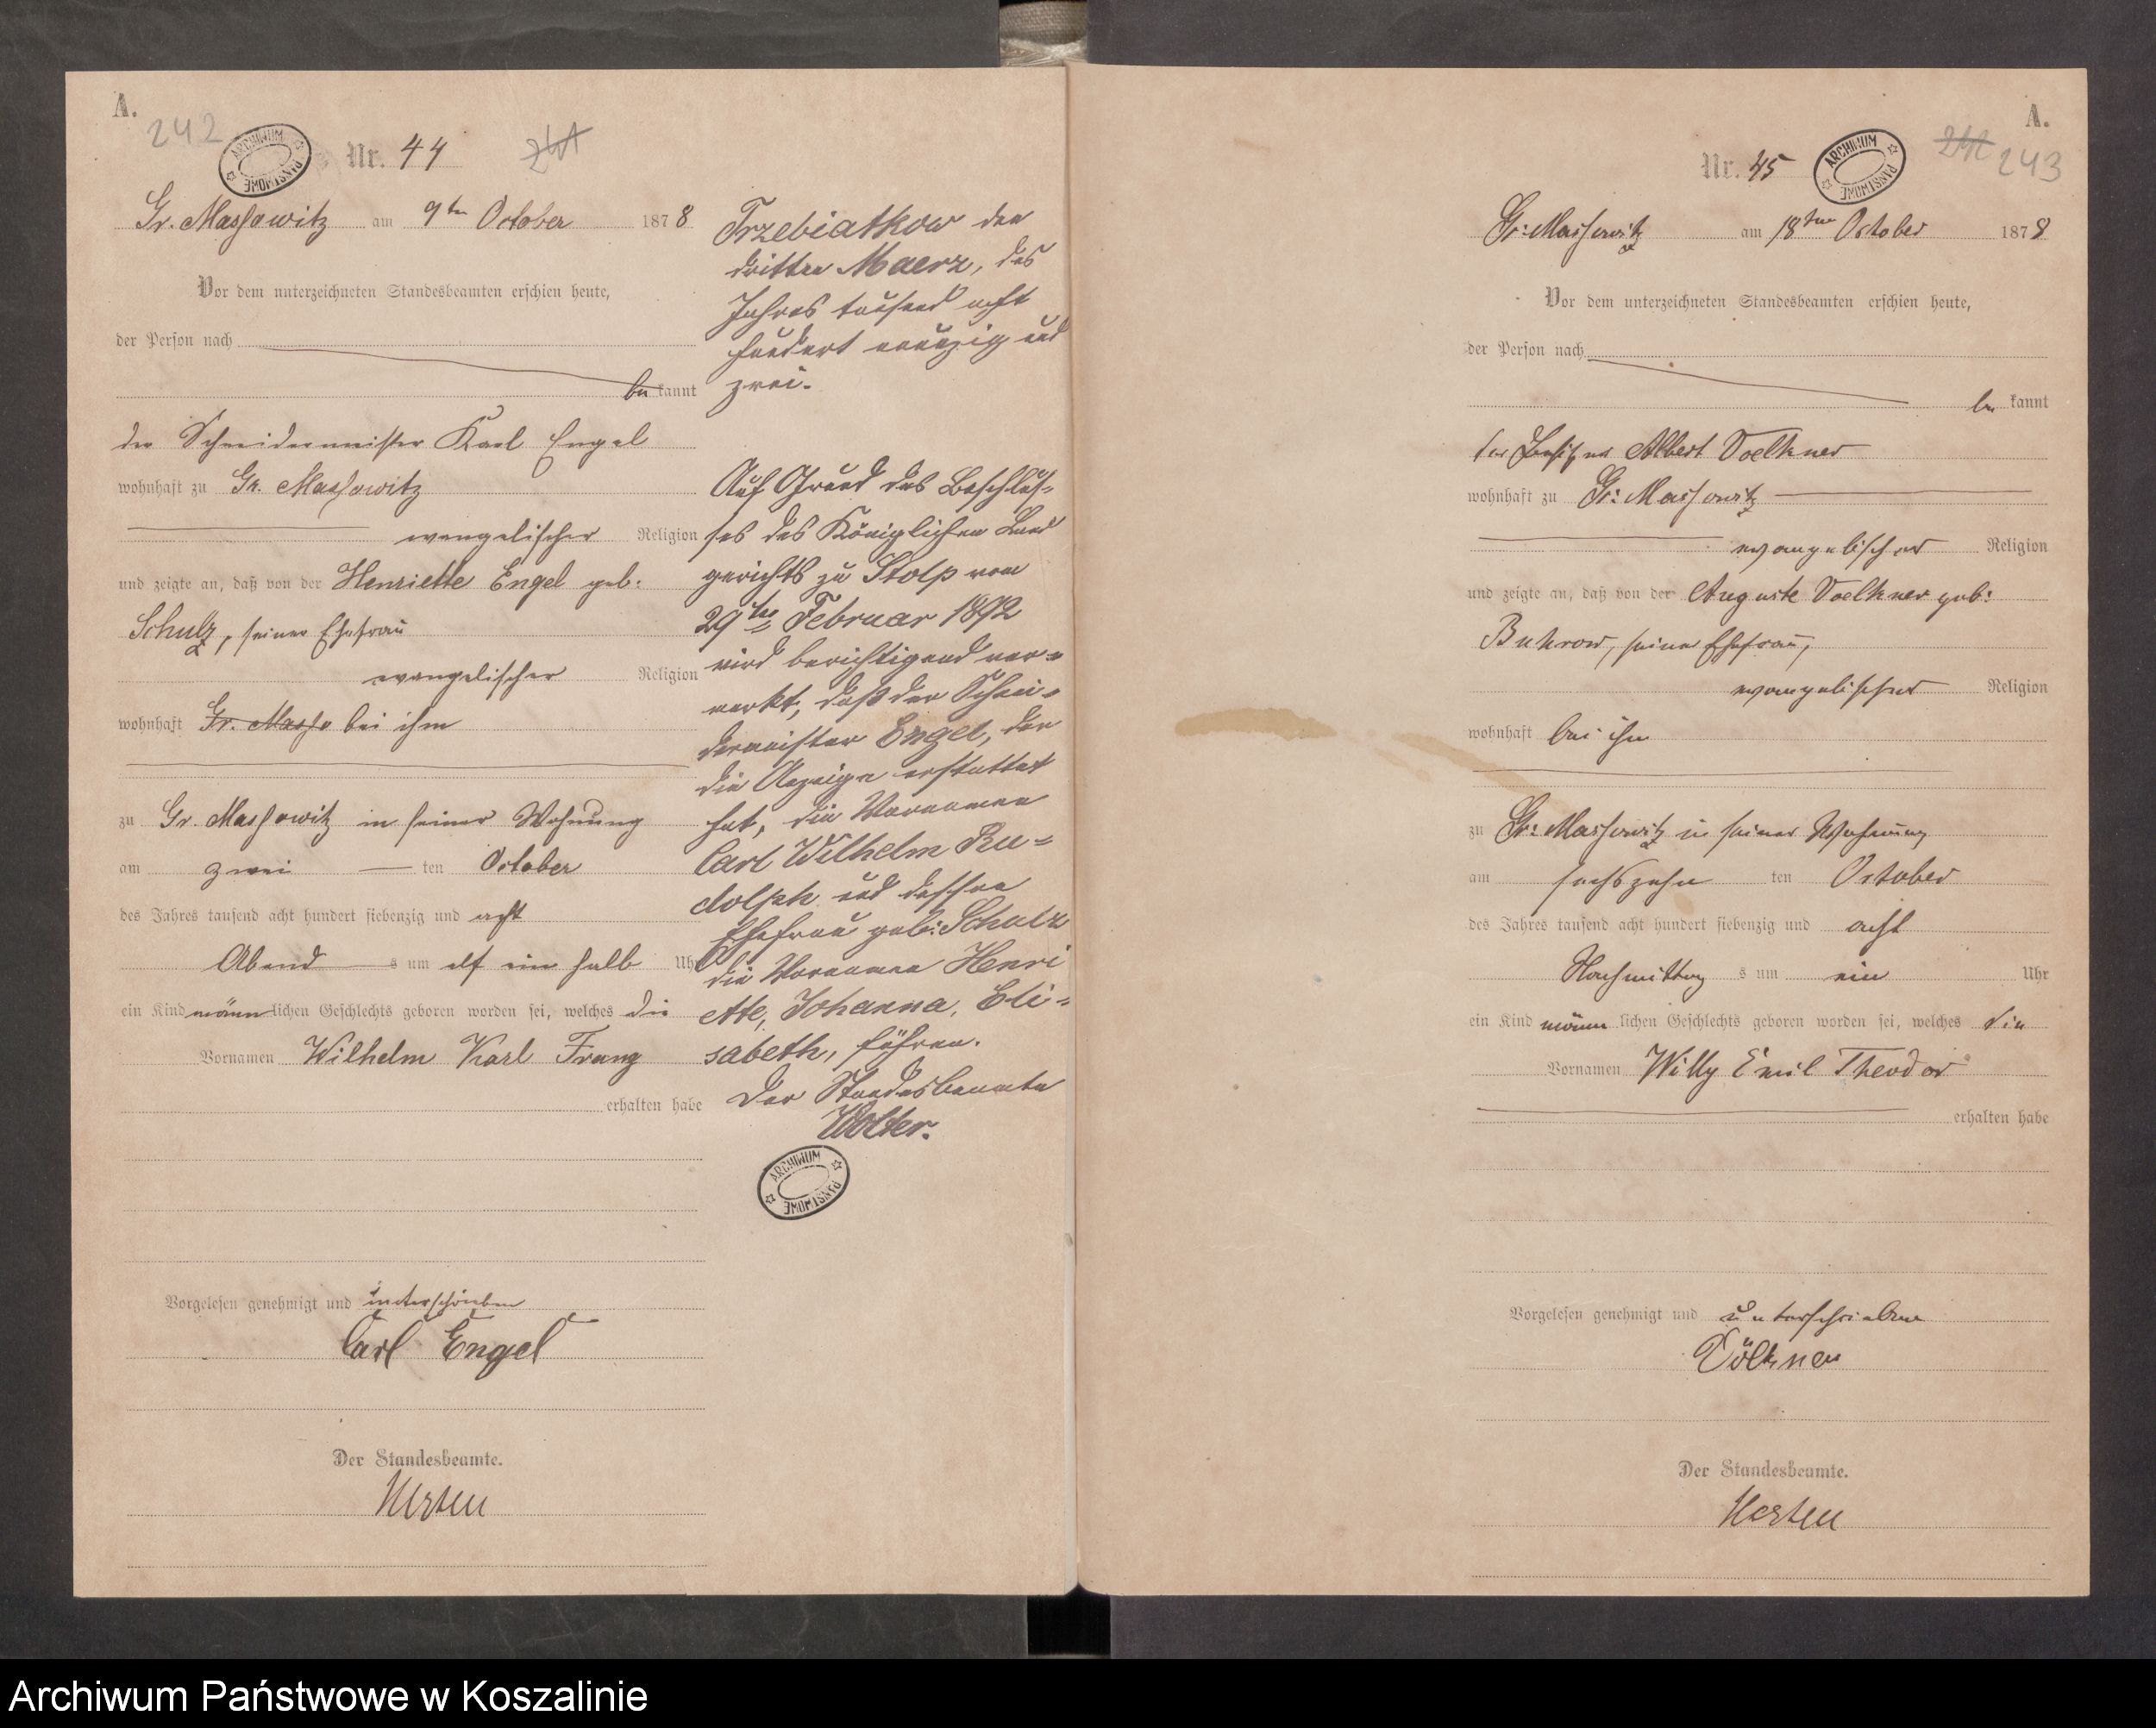 A.
242
ARCHIWUM PAŃSTWOWE
Nr. 44
241
Gr. Massowitz am 9ten October 1878
Vor dem unterzeichneten Standesbeamten erschien heute,
der Person nach
bekannt
der Schneidermeister Karl Engel
wohnhaft zu Gr. Massowitz
evangelischer Religion
und zeigte an, daß von der Henriette Engel geb:
Schulz, seiner Ehefrau
evangelischer Religion
wohnhaft Gr. Masso bei ihm
zu Gr. Massowitz in seiner Wohnung
am zwei ten October
des Jahres tausend acht hundert siebenzig und acht
Abend s um elf ein halb Uhr
ein Kind männlichen Geschlechts geboren worden sei, welches die
Vornamen Wilhelm Karl Franz
erhalten habe
Vorgelesen genehmigt und unterschrieben
Carl Engel
Der Standesbeamte.
Trzebiatkow den
dritten Maerz, des
Jahres tausend acht
hundert neunzig und
zwei.
Auf Grund des Beschlus-
ses des Königlichen Land
gerichts zu Stolp vom
29ten Februar 1892
wird berichtigend ver-
merkt, daß der Schnei-
dermeister Engel, der
die Anzeige erstattet
hat, die Vornamen
Carl Wilhelm Ru-
dolph und dessen
Ehefrau geb: Schulz
die Vornamen Henri
ette, Johanna, Eli-
sabeth, führen.
Der Standesbeamte
Wolter.
ARCHIWUM PAŃSTWOWE
A.
Nr. 45
ARCHIWUM PAŃSTWOWE
242 243
Gr: Massowitz am 18ten October 1878
Vor dem unterzeichneten Standesbeamten erschien heute,
der Person nach
bekannt
der Besitzer Albert Voelkner
wohnhaft zu Gr: Massowitz
evangelischer Religion
und zeigte an, daß von der Auguste Voelkner geb:
Buhrow, seiner Ehefrau,
evangelischer Religion
wohnhaft bei ihm
zu Gr: Massowitz in seiner Wohnung
am sechszehn ten October
des Jahres tausend acht hundert siebenzig und acht
Nachmittag s um ein Uhr
ein Kind männlichen Geschlechts geboren worden sei, welches die
Vornamen Willy Emil Theodor
erhalten habe
Vorgelesen genehmigt und unterschrieben
Völkner
Der Standesbeamte.
Archiwum Państwowe w Koszalinie